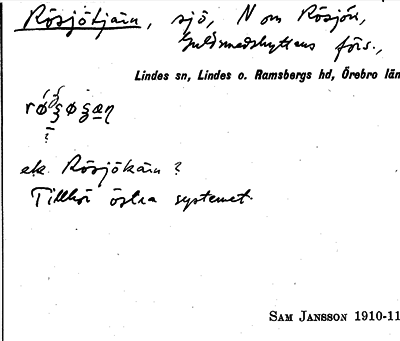 Rösjötjärn, sjö, N om Rösjön,
Guldsmedshyttans förs.,
Lindes sn, Lindes o. Ramsbergs hd, Örebro län
ek. Rösjökärn ?
Tillhör östra systemet.
SAM JANSSON 1910-11